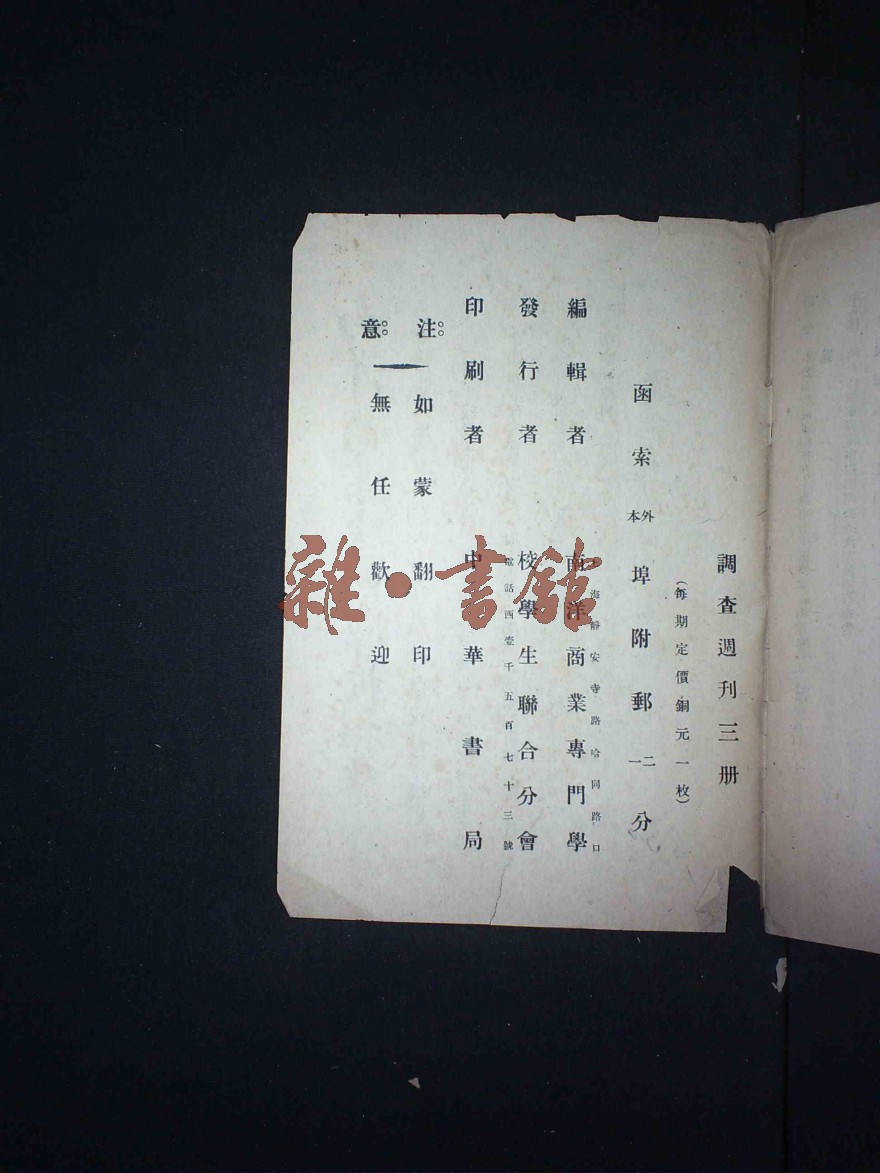 調查週刊三册
(每期定價銅元一枚)
函索外本埠附郵二一分
編輯者
發行者
上海靜安寺路哈同路口
南洋商業專門學
校學生聯合分會
電話西壹千五百七十三號
印刷者 中華書局
注意
如蒙翻印
無任歡迎
雜·書館